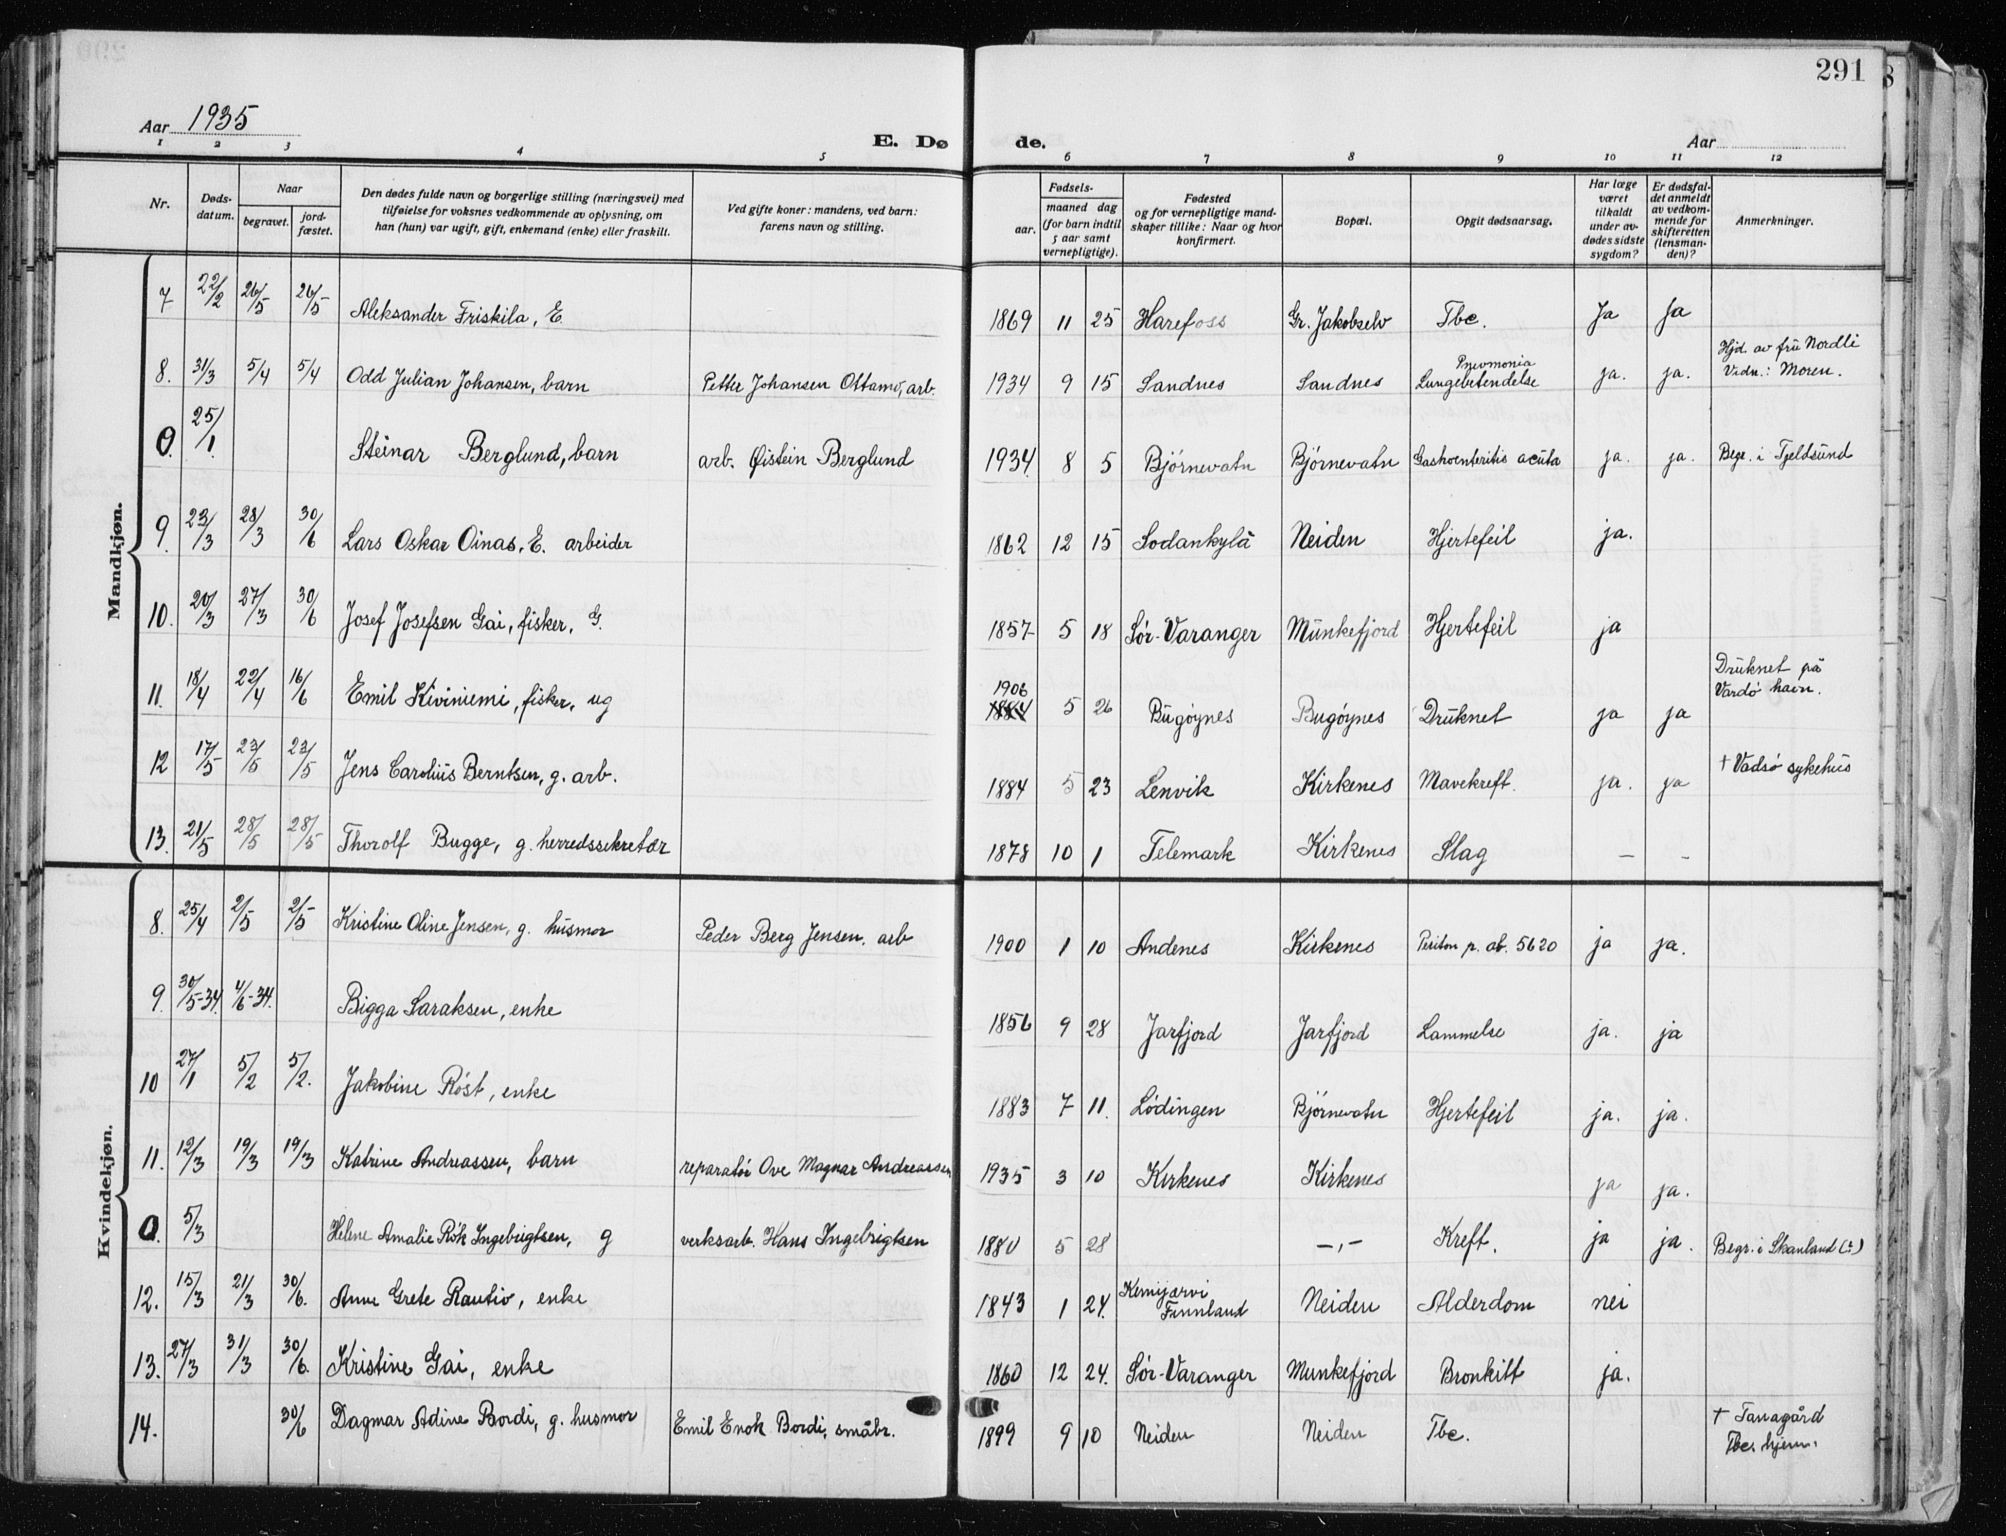 291
Aar 1935
E. Døde.
Aar
1 2 3 4 5 6 7 8 9 10 11 12
Nr.
Døds-
datum.
Naar
begravet.
jord-
fæstet.
Den dødes fulde navn og borgerlige stilling (næringsvei) med
tilføielse for voksnes vedkommende av oplysning, om
han (hun) var ugift, gift, enkemand (enke) eller fraskilt.
Ved gifte koner: mandens, ved barn:
farens navn og stilling.
Fødsels-
aar. maaned dag
(for barn indtil
5 aar samt
vernepligtige).
Fødested
og for vernepligtige mand-
skaper tillike: Naar og hvor
konfirmert.
Bopæl.
Opgit dødsaarsag.
Har læge
været
tilkaldt
under av-
dødes sidste
sygdom?
Er dødsfal-
det anmeldt
av vedkom-
mende for
skifteretten
(lensman-
den)?
Anmerkninger.
Mandkjøn.
7 22/2 26/5 26/5 Aleksander Friskila, E. 1869 11 25 Harefoss Gr. Jakobselv Tbc. Ja Ja
8. 31/3 5/4 5/4 Odd Julian Johansen, barn Petter Johansen Ottamo, arb. 1934 9 15 Sandnes Sandnes Pneomonia Lungebetendelse ja. ja. Hjd. av fru Nordli Vidn.: Moren.
0. 25/1 Steinar Berglund, barn arb. Øistein Berglund 1934 8 5 Bjørnevatn Bjørnevatn Gastroenteritis acuta ja. ja. Begr. i Tjeldsund
9. 23/3 28/3 30/6 Lars Oskar Oinas, E. arbeider 1862 12 15 Sodankylä Neiden Hjertefeil ja.
10. 20/3 27/3 30/6 Josef Josefsen Gai, fisker, G. 1857 5 18 Sør-Varanger Munkefjord Hjertefeil ja
11. 18/4 22/4 16/6 Emil Kiviniemi, fisker, ug 1906 1884 5 26 Bugøynes Bugøynes Druknet ja ja Druknet på Vardø havn.
12 17/5 23/5 23/5 Jens Carolius Berntsen, g. arb. 1884 5 23 Lenvik Kirkenes Mavekreft. ja. ja † Vadsø sykehus
13. 21/5 28/5 28/5 Thorolf Bugge, g. herredssekretær 1878 10 1 Telemark Kirkenes Slag – –
Kvindekjøn.
8. 25/4 2/5 2/5 Kristine Oline Jensen, g. husmor Peder Berg Jensen, arb 1900 1 10 Andenes Kirkenes Periton p. ab. 5620 ja ja.
9. 30/5-34. 4/6-34. Bigga Saraksen, enke 1856 9 28 Jarfjord Jarfjord Lammelse ja. ja
10 27/1 5/2 5/2. Jakobine Røst, enke 1883 7 11. Lødingen Bjørnevatn Hjertefeil ja. ja.
11. 12/3 19/3 19/3 Katrine Andreassen, barn reparatør Ove Magnar Andreassen 1935 3 10 Kirkenes Kirkenes ja ja.
0. 5/3 Helene Amalie Røk Ingebrigtsen, g verksarb. Hans Ingebrigtsen 1880 5 28 –,– Kreft. ja ja. Begr. i Skanland (:)
12. 15/3 21/3 30/6. Anne Grete Rautio, enke 1843 1 24. Kemijærvi Finnland Neiden Alderdom nei
13. 27/3 31/3 30/6. Kristine Gai, enke 1860 12 24. Sør-Varanger Munkefjord Bronkitt ja.
14. 30/6 Dagmar Adine Bordi, g. husmor Emil Enok Bordi, småbr. 1899 9 10 Neiden Neiden Tbc. † Tanagård Tbc. hjem.